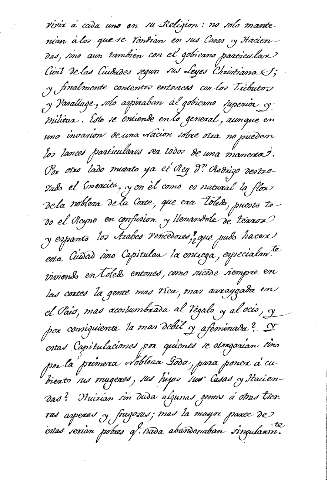 vivir á cada uno en su Religion: no solo mante-
nian á los que se rendian en sus Casas y Hacien-
das, sino aun tambien con el gobierno particular
Civil de las Ciudades segun sus Leyes Christianas;
y finalmente contentos entonces con los Tributos
y Vasallage, solo aspiraban al gobierno superior y
militar. Esto se entiende en lo general, aunque en
una invasion de una nacion sobre otra no pueden
los lances particulares ser todos de una manera?
Por otro lado muerto ya el Rey Dn. Rodrigo destro-
zado el Exercito, y en él como es natural la flor
de la nobleza de la Corte, que era Toledo, puesto to-
do el Reyno en confusion y llenandole de terror
y espanto los Arabes vencedores, que pudo hacer
esta Ciudad sino Capitular la entrega, especialmte
viviendo en Toledo entonces, como sucede siempre en
las cortes la gente mas rica, mas arraygada en
el Pais, mas acostumbrada al regalo y al ocio, y
por consiguiente la mas debil y afeminada? Y
estas Capitulaciones, por quienes se otorgarian sino
por la primera Nobleza Goda, para poner á cu-
bierto sus mugeres, sus hijos sus Casas y Hacien-
das? Huirian sin duda algunas gentes á otras tier-
ras asperas y fragosas; mas la mayor parte de
estas serian pobres q.e nada abandonaban singularmte